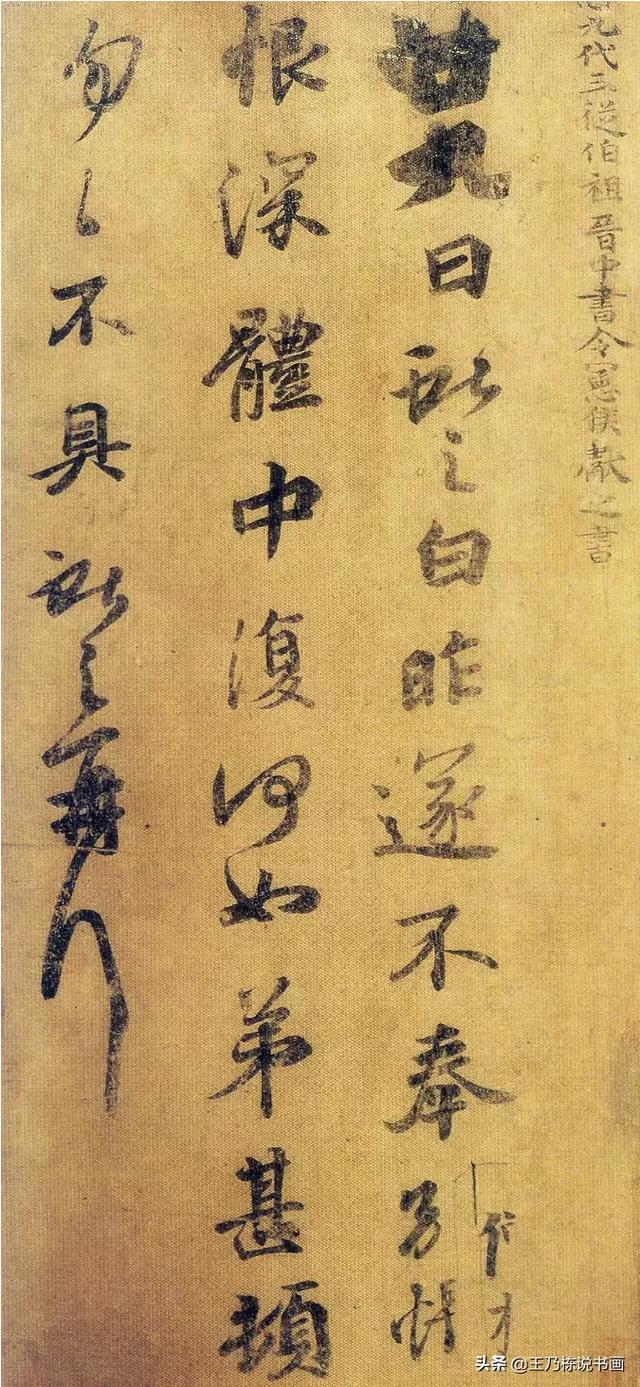 九代三從伯祖晉中書令憲侯獻之書
廿九日獻之白昨遂不奉別悵
恨深體中復何如弟甚頓
匆〻不具獻之再拜
头条 @王乃栋说书画